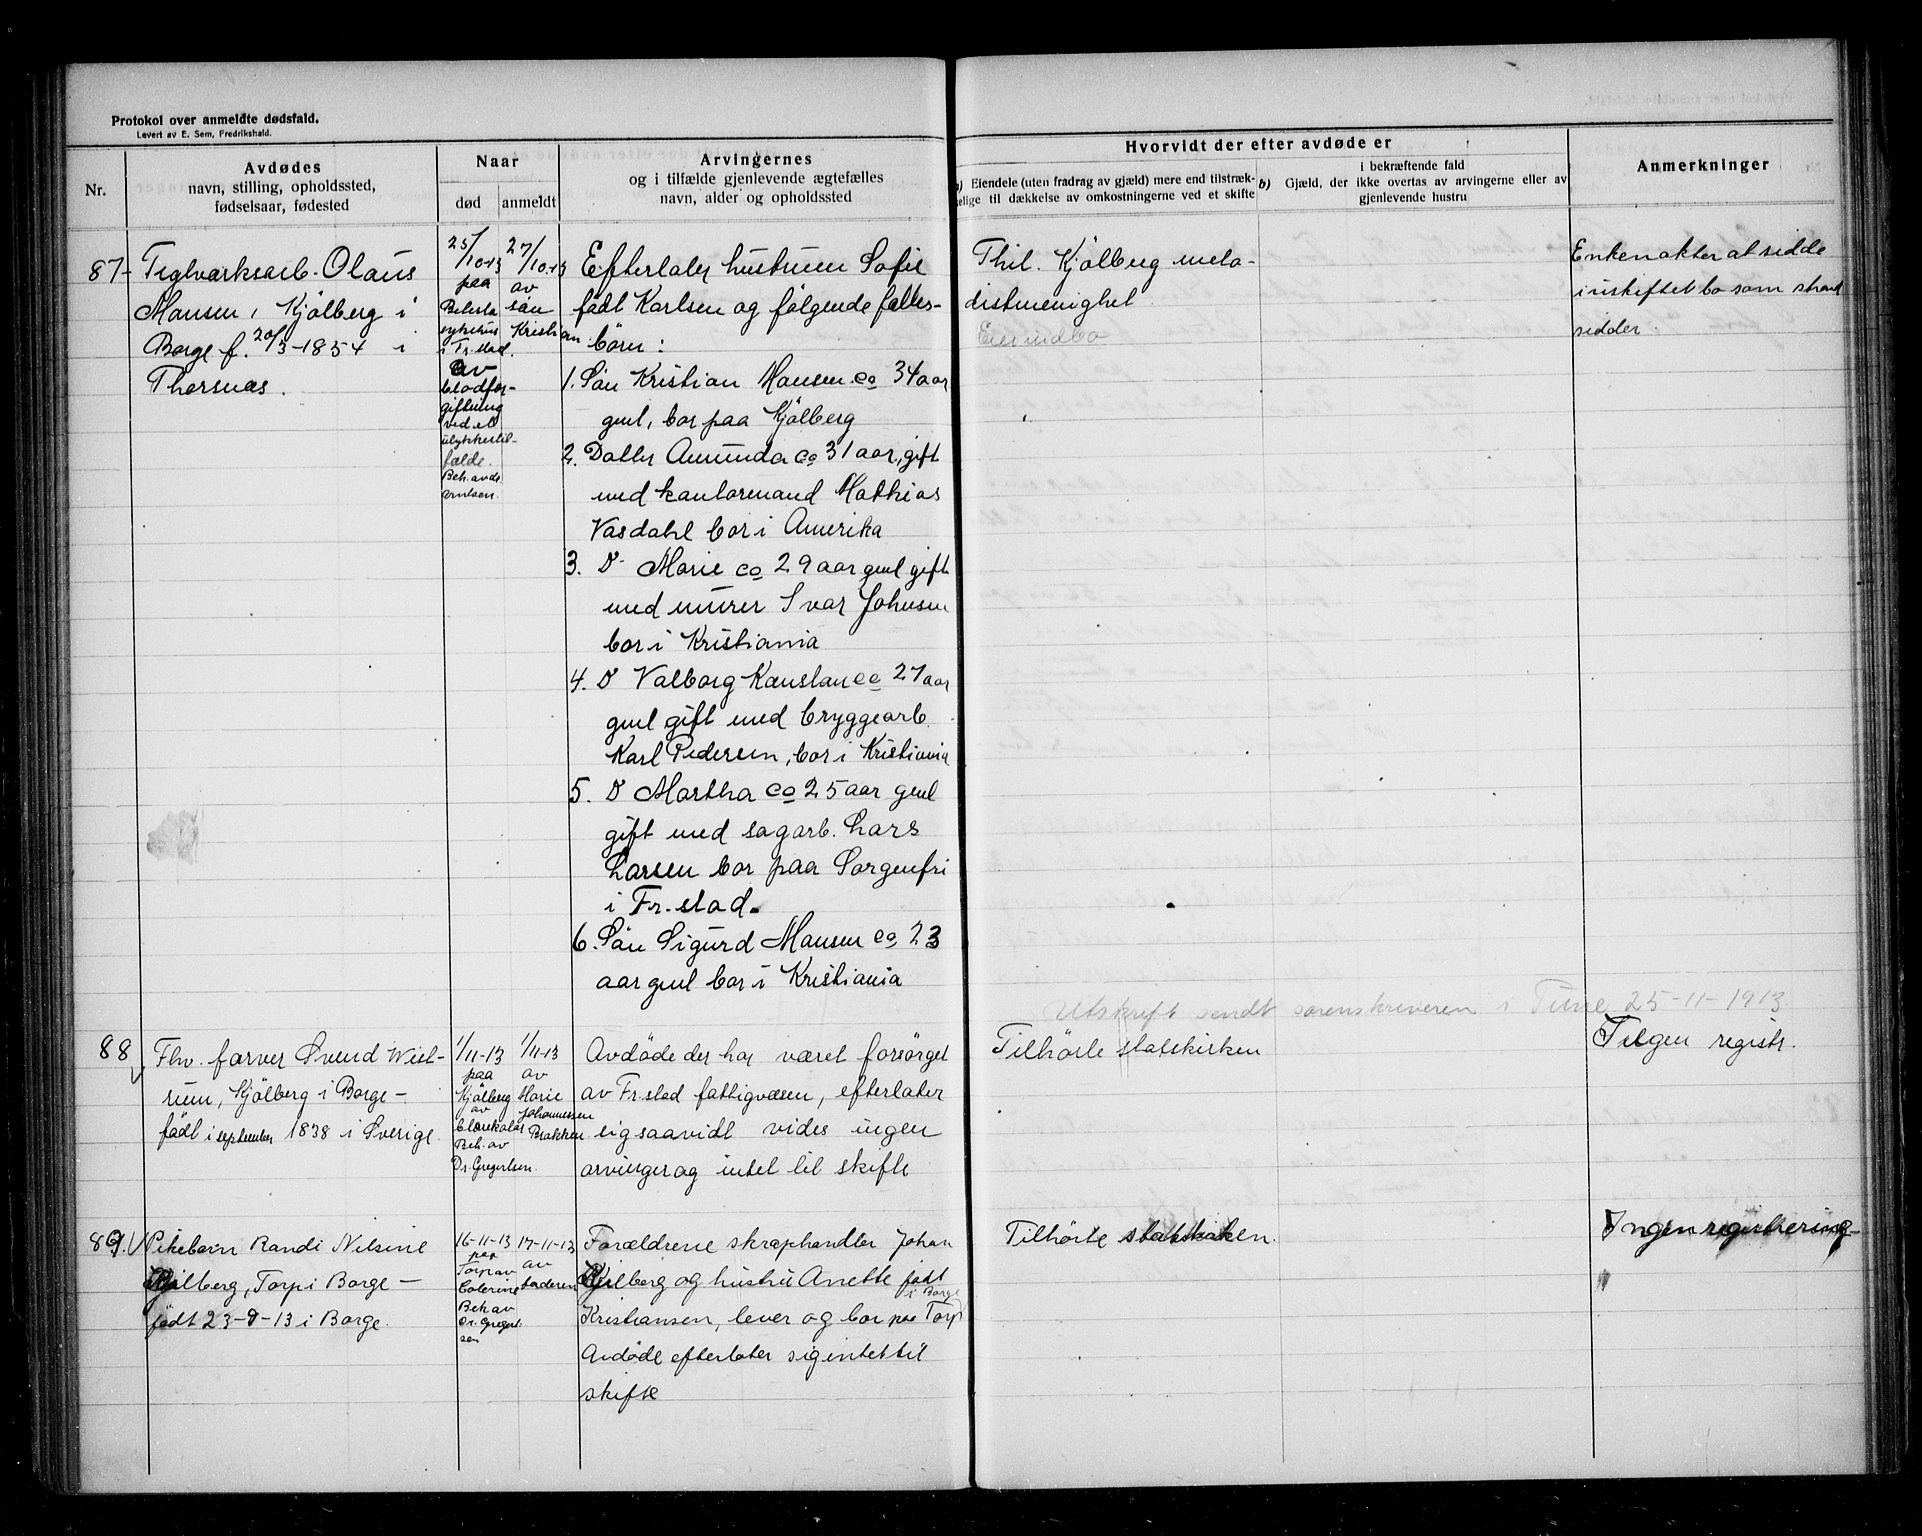 Protokol over anmeldte dødsfald.
Levert av E. Sem, Fredrikshald.
Nr.
Avdødes
navn, stilling, opholdssted,
fødselsaar, fødested
Naar
død
anmeldt
Arvingernes
og i tilfælde gjenlevende ægtefælles
navn, alder og opholdssted
Hvorvidt der efter avdøde er
a) Eiendele (uten fradrag av gjæld) mere end tilstræk-
kelige til dækkelse av omkostningerne ved et skifte
b)
i bekræftende fald
Gjæld, der ikke overtas av arvingerne eller av
gjenlevende hustru
Anmerkninger
87-
Teglverksarb. Olaus
Hansen, Kjölberg i
Borge f. 20/3-1854 i
Thorsnæs.
25/10-13
paa
sykehus
i Fr.stad.
av
blodfor-
giftning
ved et
ulykkestil-
fælde.
27/10-13
av
sön
Kristian
Efterlater hustruen Sofie
född Karlsen og følgende fælles-
börn:
1. Sön Kristian Hansen ca 34 aar
gml, bor paa Kjölberg
2. Datter Amunda ca 31 aar, gift
med kontormand Mathias
Vasdahl bor i Amerika
3. D Marie ca 29 aar gml gift
med murer Ivar Johnsen
bor i Kristiania
4. D Valborg Konstance 27 aar
gml gift med bryggearb.
Karl Pedersen, bor i Kristiania
5. D Martha ca 25 aar gml
gift med sagarb. Lars
Larsen bor paa Sorgenfri
i Fr.stad.
6. Sön Sigurd Hansen ca 23
aar gml bor i Kristiania
Thil. Kjölberg meto-
distmenighet
Eier indbo
Enken akter at sidde
i uskiftet bo som
sidder.
Utskrift sendt sorenskriveren i Tune 25-11-1913.
88
Fhv. farver Svend Wiel-
rum, Kjölberg i Borge -
født i september 1838 i Sverige.
1/11-13
paa
Kjölberg
av
Beh. av
Dr. Gregertsen.
1/11-13
av
Marie
Johannessen
Brakken
Avdöde der har været forsörget
av Fr.stad fattigvæsen, efterlater
sig saavidt vides ingen
arvinger og intet til skifte
Tilhörte statskirken
Ingen registr.
89.
Pikebarn Randi Nilsine
Kjölberg, Torp i Borge -
født 23-9-13 i Borge.
16-11-13
paa
Torp av
Colerine
Beh av
Dr. Gregert-
sen
17-11-13
av
faderen
Forældrene skraphandler Johan
Kjölberg og hustru Anette født
i Borge
Kristiansen, lever og bor paa Torp
Avdøde efterlater sig intet til
skifte
Tilhörte statskirken.
Ingen registrering